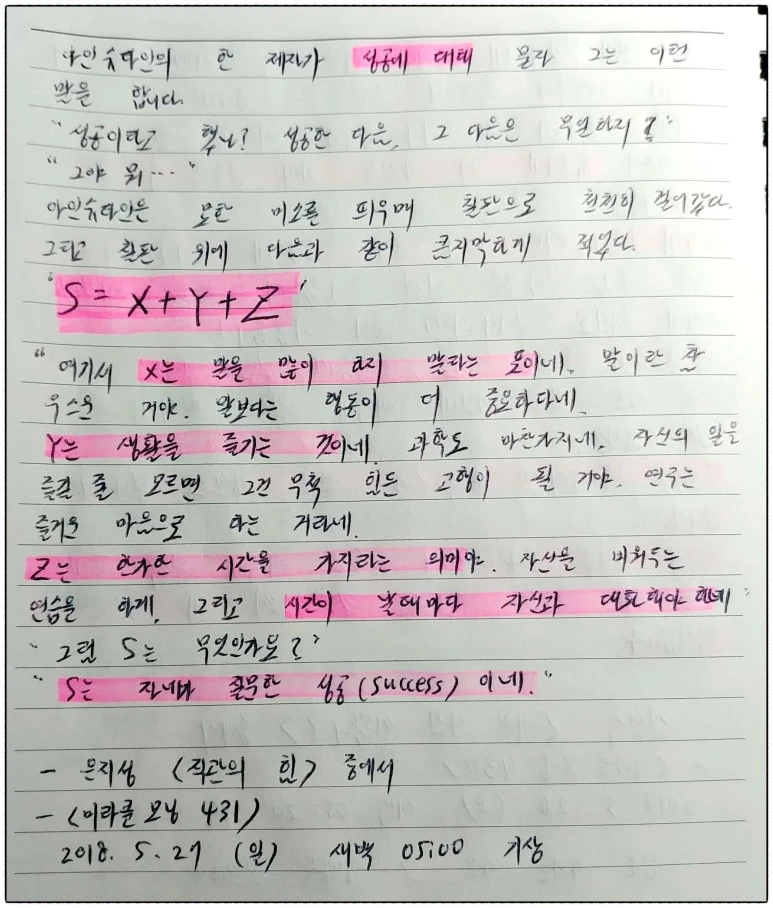 아인슈타인의 한 제자가 성공에 대해 묻자 그는 이런
말을 합니다.
"성공이라고 했나? 성공한 다음, 그 다음은 무얼하지?"
"그야 뭐…"
아인슈타인은 묘한 미소를 띄우며 칠판으로 천천히 걸어갔다.
그리고 칠판 위에 다음과 같이 큼지막하게 적었다.
'S = X + Y + Z'
"여기서 X는 말을 많이 하지 말라는 뜻이네. 말이란 참
우스운 거야. 말보다는 행동이 더 중요하다네.
Y는 생활을 즐기는 것이네. 과학도 마찬가지네. 자신의 일을
즐길 줄 모르면 그건 무척 힘든 고행이 될 거야. 연구는
즐거운 마음으로 하는 거라네.
Z는 한가한 시간을 가지라는 의미야. 자신을 비워두는
연습을 하게. 그리고 시간이 날때마다 자신과 대화해야 하네"
"그럼 S는 무엇인가요?"
"S는 자네가 질문한 성공(success) 이네."
- 은지성 <직관의 힘> 중에서
- <미라클 모닝 431>
2018. 5. 27 (일) 새벽 05:00 기상